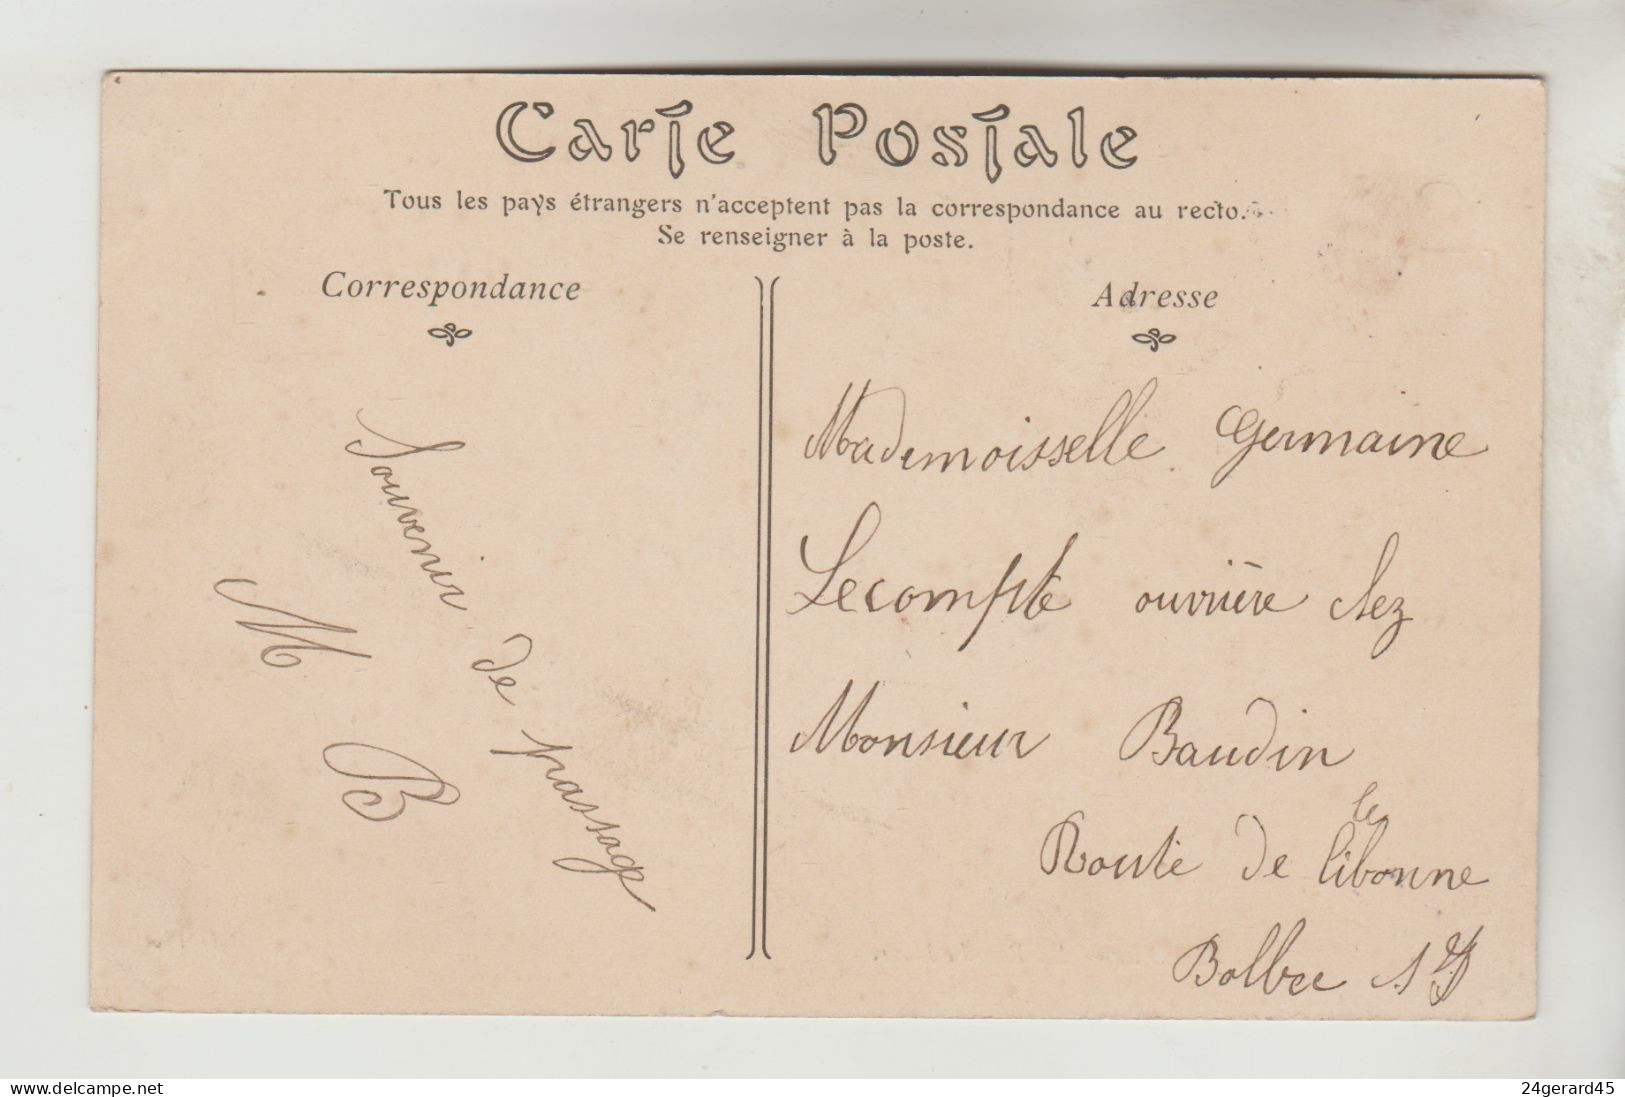 Carte Postale
Tous les pays étrangers n'acceptent pas la correspondance au recto.
Se renseigner à la poste.
Correspondance
Souvenir de passage
M B
Adresse
Mademoisselle Germaine
Lecompte ouvrière chez
Monsieur Baudin
le
Route de libonne
Bolbec
delcampe.net
24gerard45